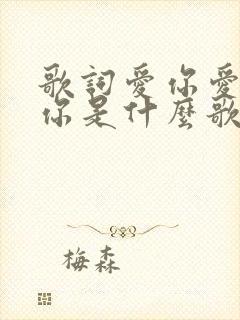 歌詞愛你愛
你是什麼歌
梅森